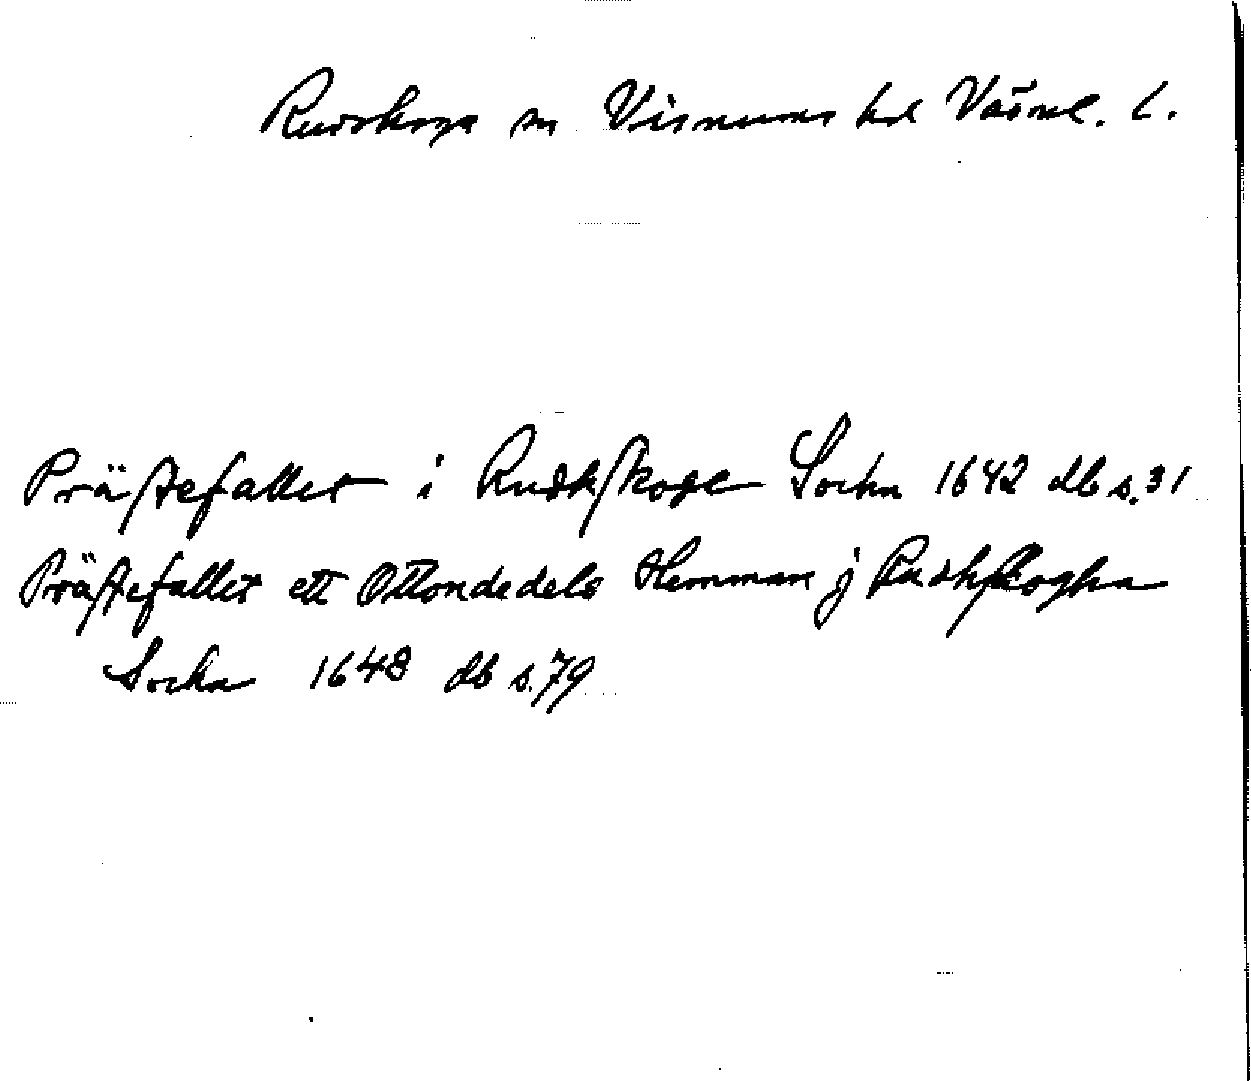 Rudskoga sn Visnums hd Värml. l.
Prästefallet i Rudhskoge Sochn 1642 db s. 31
Prästefallet ett Ottondedels Hemman j Rudhskogha
Sochn 1648 db s. 79